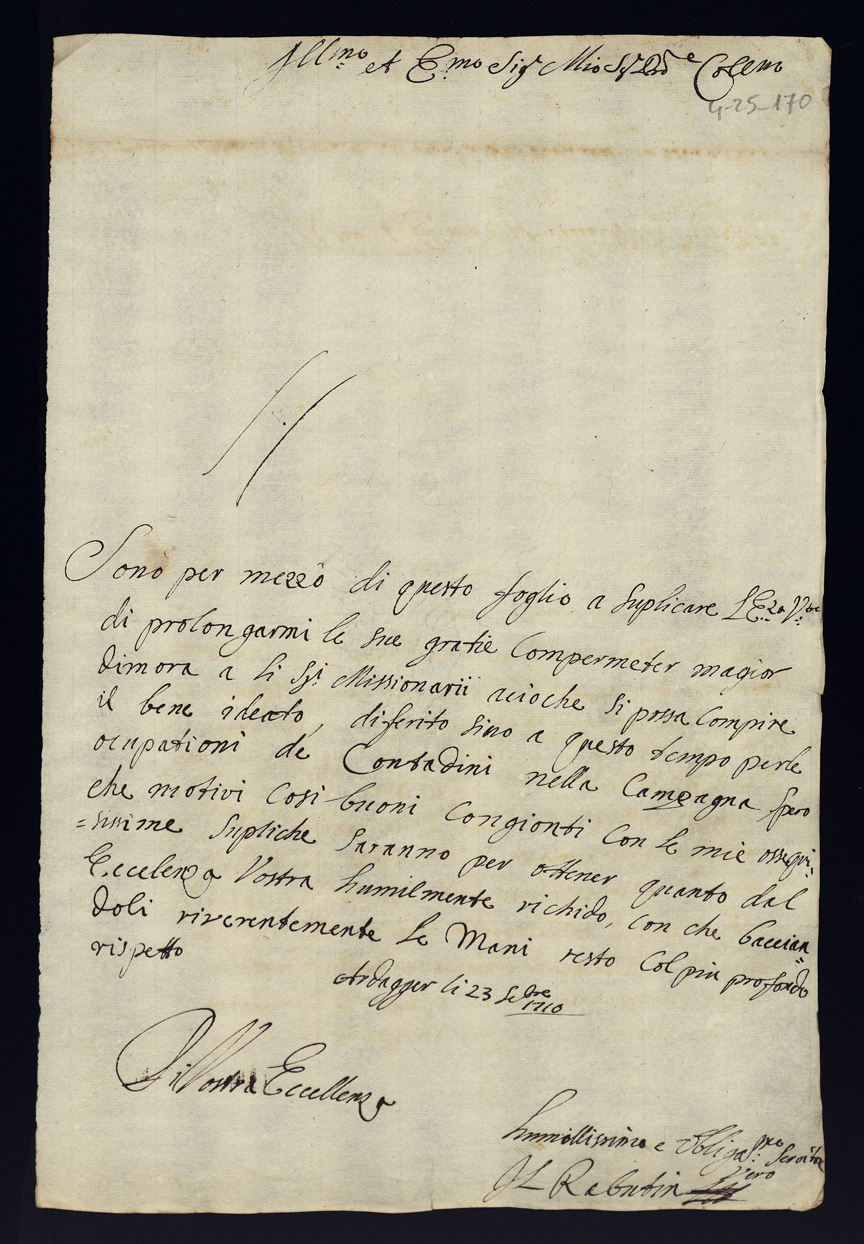 Illmo et Ecmo Sigr Mio Sigr Prone Colmo
4-25-170
Sono per mezzo di questo foglio a suplicare L'Eza Vra
di prolongarmi le sue gratie Compermeter magior
dimora a li Sgri Missionarii acioche si possa Compire
il bene ideato, diferito sino a questo tempo perle
ocupationi de Contadini nella Campagna spero
che motivi Cosi buoni Congionti Con le mie ossequi=
=sissime supliche saranno per ottener quanto dal
Eccelenza Vostra humilmente richido, con che baccian=
doli riverentemente le Mani resto Col piu profondo
rispetto
Ardagger li 23 Sebre
1710
Di Vostra Eccellenza
humillissimo e obligamo servitor
vero
Rabutin